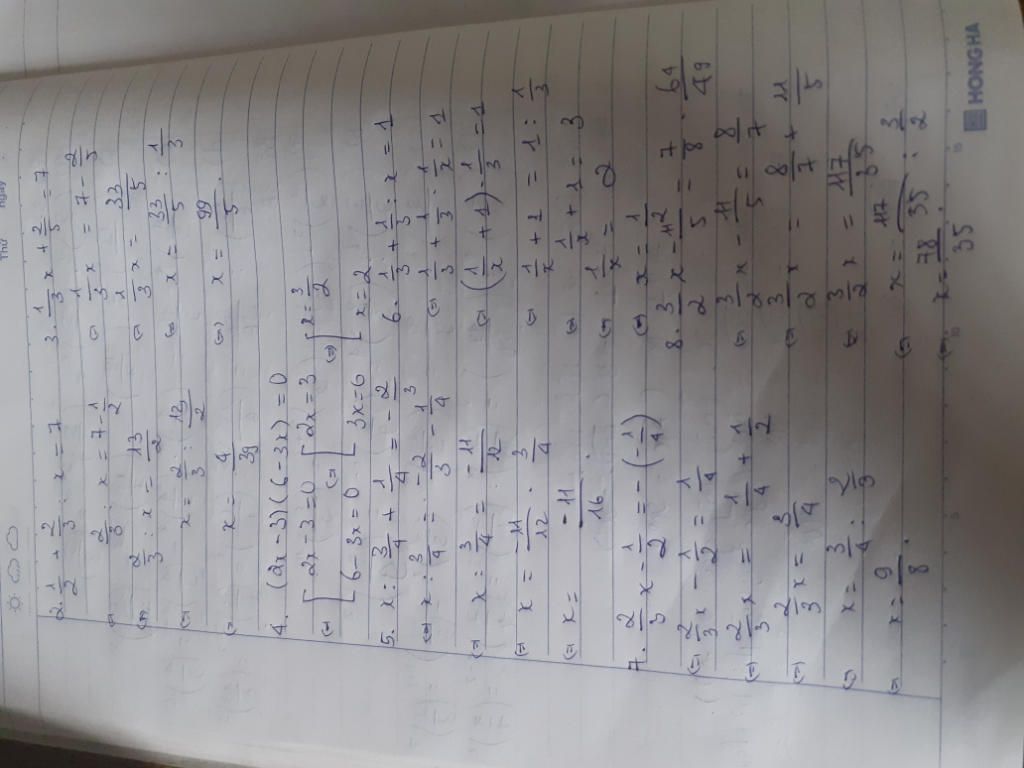 Thứ
Ngày
2. 1/2 + 2/3 : x = 7
⇔ 2/3 : x = 7 - 1/2
⇔ 2/3 : x = 13/2
⇔ x = 2/3 : 13/2
⇔ x = 4/39
3. 1/3 x + 2/5 = 7
⇔ 1/3 x = 7 - 2/5
⇔ 1/3 x = 33/5
⇔ x = 33/5 : 1/3
⇔ x = 99/5.
4. (2x - 3)(6 - 3x) = 0
⇔ [ 2x - 3 = 0 ⇔ [ 2x = 3 ⇔ [ x = 3/2
6 - 3x = 0 3x = 6 x = 2
5. x : 3/4 + 1/4 = - 2/3
⇔ x : 3/4 = - 2/3 - 1/4
⇔ x : 3/4 = - 11/12
⇔ x = - 11/12 . 3/4
⇔ x = - 11/16 .
6. 1/3 + 1/3 : x = 1
⇔ 1/3 + 1/3 . 1/x = 1
⇔ (1/x + 1) 1/3 = 1
⇔ 1/x + 1 = 1 : 1/3
⇔ 1/x + 1 = 3
⇔ 1/x = 2
⇔ x = 1/2
7. 2/3 x - 1/2 = - (- 1/4)
⇔ 2/3 x - 1/2 = 1/4
⇔ 2/3 x = 1/4 + 1/2
⇔ 2/3 x = 3/4
⇔ x = 3/4 : 2/3
⇔ x = 9/8 .
8. 3/2 x - 11/5 = 7/8 . 64/49
⇔ 3/2 x - 11/5 = 8/7
⇔ 3/2 x = 8/7 + 11/5
⇔ 3/2 x = 117/35
⇔ x = 117/35 : 3/2
⇔ x = 78/35 .
HONG HA